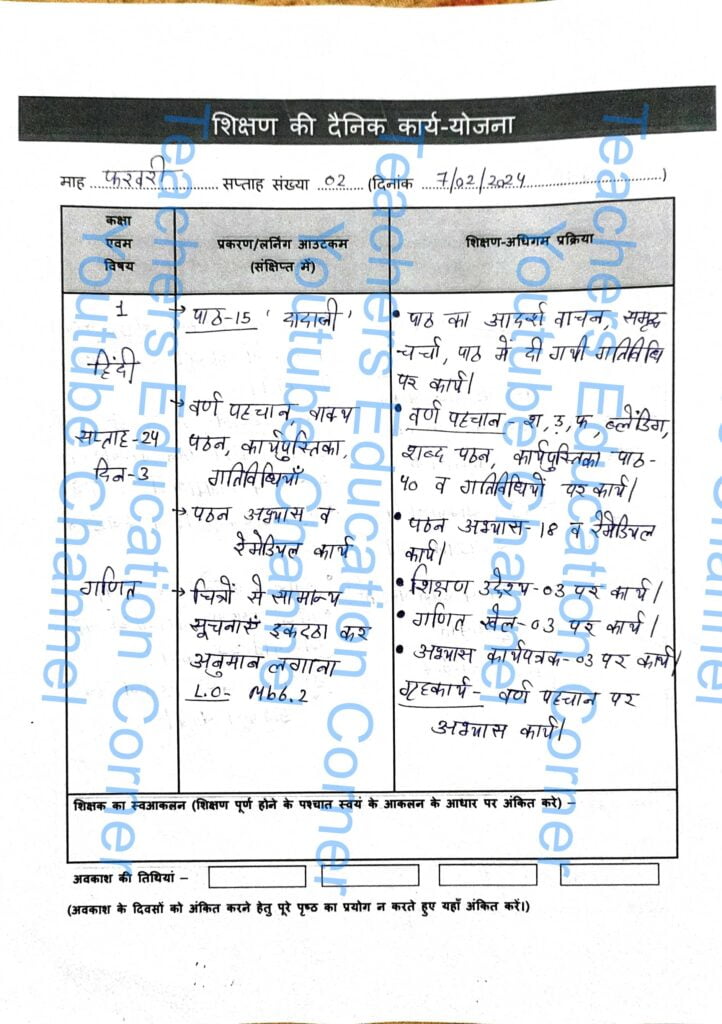 शिक्षण की दैनिक कार्य-योजना
माह फरवरी सप्ताह संख्या 02 (दिनांक 7/02/2024)
कक्षा
एवम
विषय
प्रकरण/लर्निंग आउटकम
(संक्षिप्त में)
शिक्षण-अधिगम प्रक्रिया
1
हिंदी
सप्ताह-24
दिन-3
गणित
→ पाठ-15 'दादाजी'
→ वर्ण पहचान, वाक्य
पठन, कार्यपुस्तिका,
गतिविधियाँ
→ पठन अभ्यास व
रेमेडियल कार्य
→ चित्रों से सामान्य
सूचनाएँ इकट्ठा कर
अनुमान लगाना
L.O- M66.2
• पाठ का आदर्श वाचन, समूह
चर्चा, पाठ में दी गयी गतिविधि
पर कार्य।
• वर्ण पहचान - श, ड़, फ, ब्लेंडिंग,
शब्द पठन, कार्यपुस्तिका पाठ-
40 व गतिविधियों पर कार्य।
• पठन अभ्यास-18 व रेमेडियल
कार्य।
• शिक्षण उद्देश्य-03 पर कार्य।
• गणित खेल-03 पर कार्य।
• अभ्यास कार्यपत्रक-03 पर कार्य।
गृहकार्य - वर्ण पहचान पर
अभ्यास कार्य।
शिक्षक का स्वआकलन (शिक्षण पूर्ण होने के पश्चात स्वयं के आकलन के आधार पर अंकित करे) –
अवकाश की तिथियां –
(अवकाश के दिवसों को अंकित करने हेतु पूरे पृष्ठ का प्रयोग न करते हुए यहाँ अंकित करें।)
Teachers Education Corner
Youtube Channel
Teachers Education Corner
Youtube Channel
Teachers Education Corner
Youtube Channel